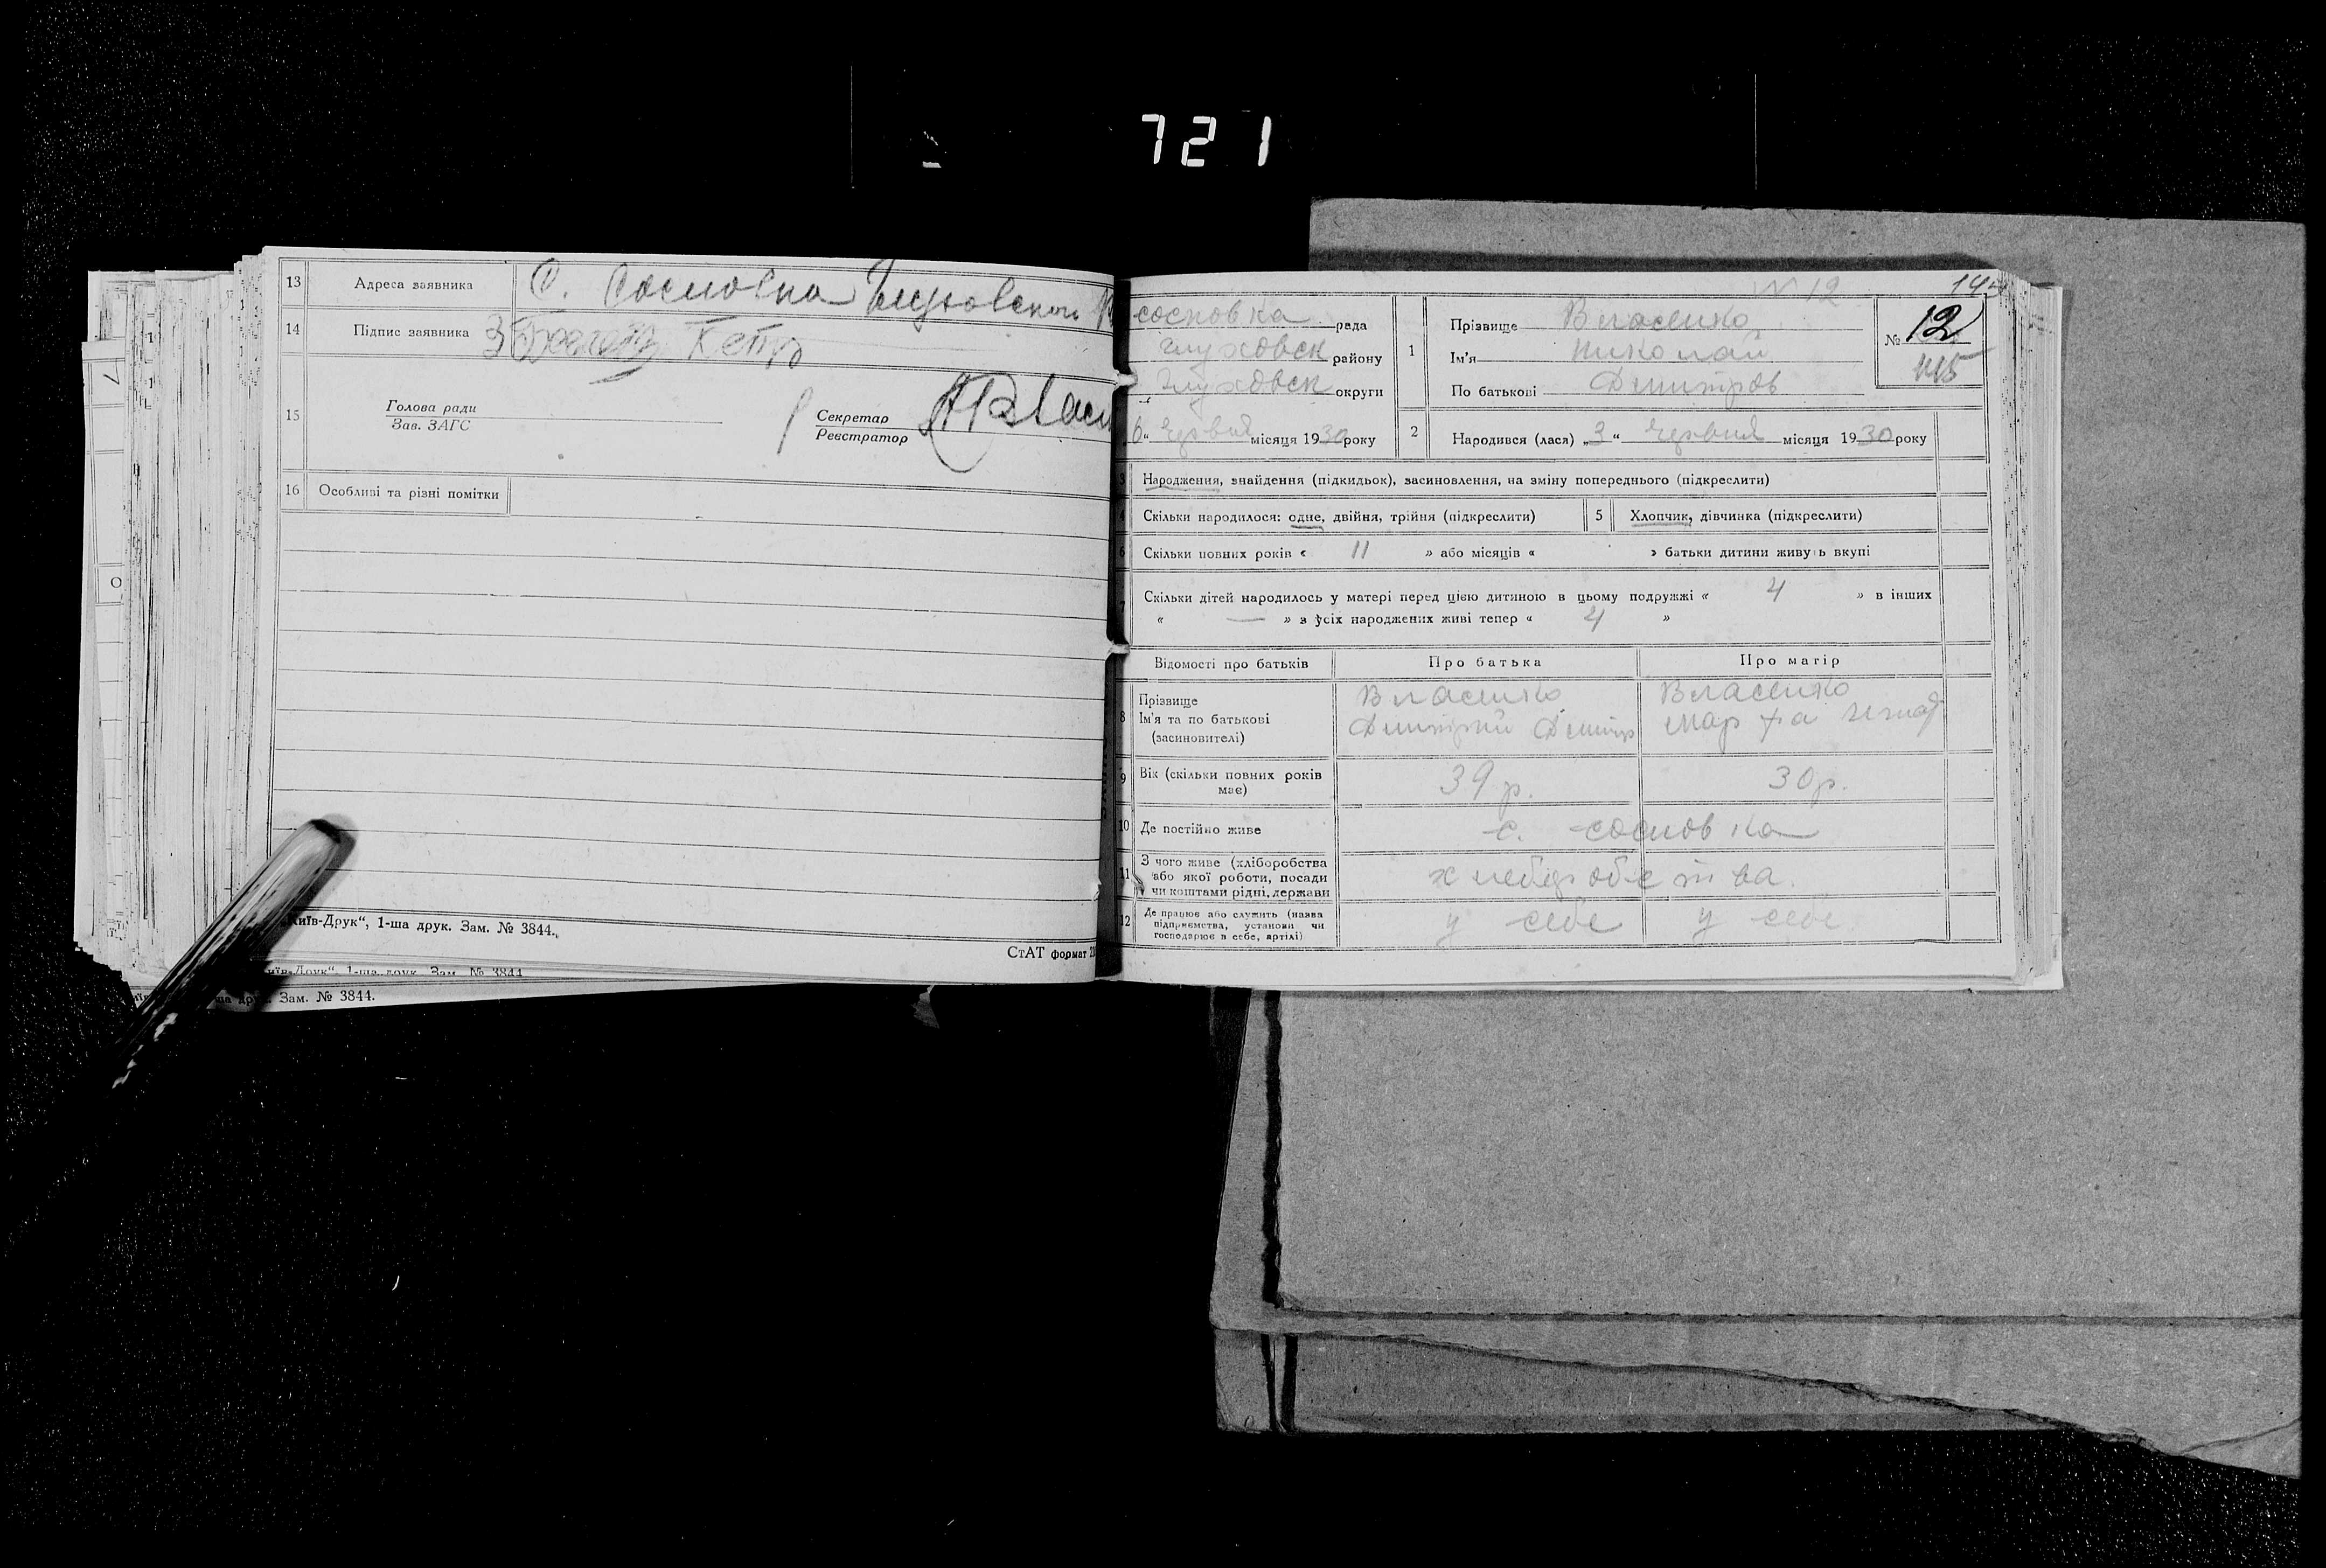 721
13 Адреса заявника С. Сосновка Глуховского
14 Підпис заявника Петр
15 Голова ради
Зав. ЗАГС
Секретар
Реєстратор
16 Особливі та різні помітки
„Київ-Друк“, 1-ша друк. Зам. № 3844.
СтАТ формат
Київ-Друк“, 1-ша друк. Зам. № 3844
ша друк. Зам. № 3844.
N 12
145
сосновка рада
глуховск району
глуховск округи
6 “ червня місяця 1930 року
1 Прізвище Власенко
Ім'я николай
По батькові Дмитров
№ 12
145
2 Народився (лася) „3“ червня місяця 1930 року
3 Народження, знайдення (підкидьок), засиновлення, на зміну попереднього (підкреслити)
4 Скільки народилося: одне, двійня, трійня (підкреслити) 5 Хлопчик, дівчинка (підкреслити)
6 Скільки повних років « 11 » або місяців « » батьки дитини живуть вкупі
7 Скільки дітей народилось у матері перед цією дитиною в цьому подружжі « 4 » в інших
« — » з усіх народжених живі тепер « 4 »
Відомості про батьків Про батька Про матір
8 Прізвище Власенко Власенко
Ім'я та по батькові Дмитрий Дмитр марфа
(засиновителі)
9 Вік (скільки повних років 39 р. 30 р.
має)
10 Де постійно живе с. сосновка
11 З чого живе (хліборобства
або якої роботи, посади хлеборобства.
чи коштами рідні, держави
12 Де працює або служить (назва у себе у себе
підприємства, установи чи
господарює в себе, артілі)